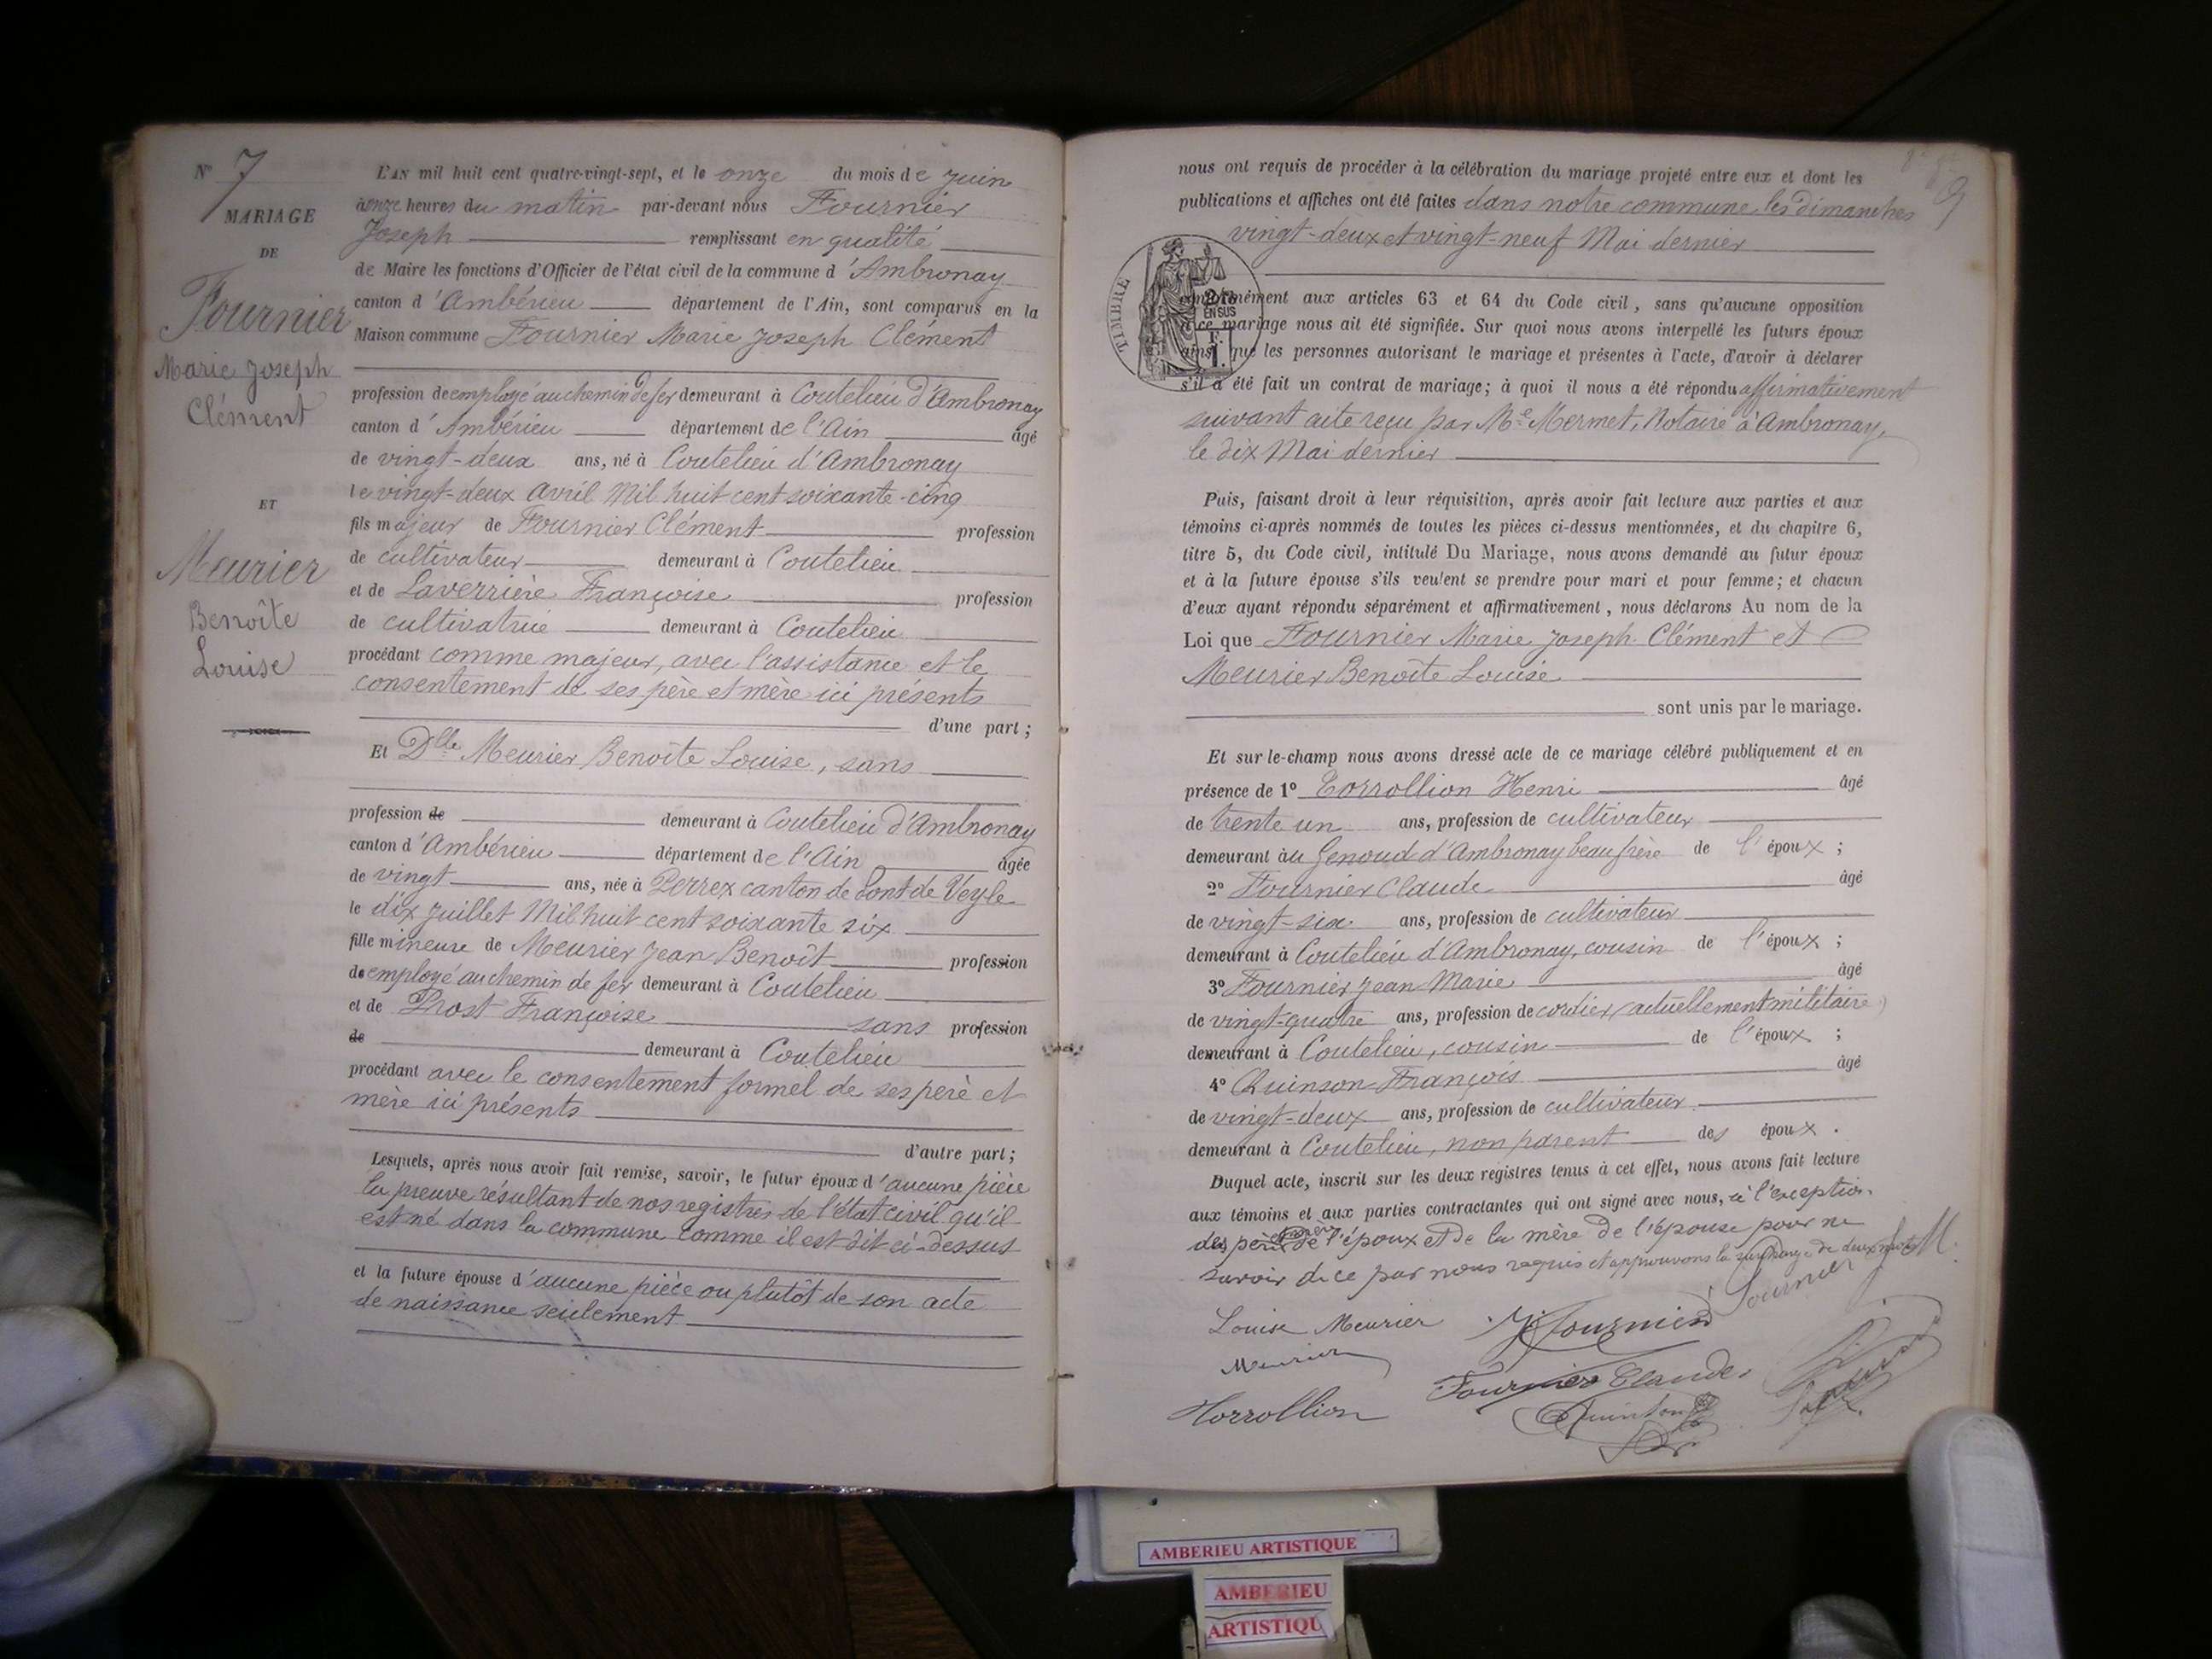 N° 7
MARIAGE
DE
Fournier
Marie Joseph
Clément
ET
Meurier
Benoîte
Louise
L'AN mil huit cent quatre-vingt-sept, et le onze du mois de juin
à onze heures du matin par-devant nous Fournier
Joseph remplissant en qualité
de Maire les fonctions d'Officier de l'état civil de la commune d'Ambronay
canton d'Ambérieu département de l'Ain, sont comparus en la
Maison commune Fournier Marie Joseph Clément
profession de employé au chemin de fer demeurant à Coutelieu d'Ambronay
canton d'Ambérieu département de l'Ain âgé
de vingt-deux ans, né à Coutelieu d'Ambronay
le vingt-deux Avril Mil huit cent soixante-cinq
fils majeur de Fournier Clément profession
de cultivateur demeurant à Coutelieu
et de Laverrière Françoise profession
de cultivatrice demeurant à Coutelieu
procédant comme majeur, avec l'assistance et le
consentement de ses père et mère ici présents
d'une part;
Et Dlle Meurier Benoîte Louise, sans
profession de demeurant à Coutelieu d'Ambronay
canton d'Ambérieu département de l'Ain âgée
de vingt ans, née à Perrex canton de Pont de Veyle
le dix juillet Mil huit cent soixante six
fille mineure de Meurier Jean Benoît profession
de employé au chemin de fer demeurant à Coutelieu
et de Prost Françoise sans profession
de demeurant à Coutelieu
procédant avec le consentement formel de ses père et
mère ici présents
d'autre part;
Lesquels, après nous avoir fait remise, savoir, le futur époux d'aucune pièce
la preuve résultant de nos registres de l'état civil qu'il
est né dans la commune comme il est dit ci-dessus
et la future épouse d'aucune pièce ou plutôt de son acte
de naissance seulement
9
nous ont requis de procéder à la célébration du mariage projeté entre eux et dont les
publications et affiches ont été faites dans notre commune les dimanches
vingt-deux et vingt-neuf Mai dernier
TIMBRE
EN SUS
conformément aux articles 63 et 64 du Code civil, sans qu'aucune opposition
à ce mariage nous ait été signifiée. Sur quoi nous avons interpellé les futurs époux
ainsi que les personnes autorisant le mariage et présentes à l'acte, d'avoir à déclarer
s'il a été fait un contrat de mariage; à quoi il nous a été répondu affirmativement
suivant acte reçu par Me Mermet, Notaire à Ambronay,
le dix Mai dernier
Puis, faisant droit à leur réquisition, après avoir fait lecture aux parties et aux
témoins ci-après nommés de toutes les pièces ci-dessus mentionnées, et du chapitre 6,
titre 5, du Code civil, intitulé Du Mariage, nous avons demandé au futur époux
et à la future épouse s'ils veulent se prendre pour mari et pour femme; et chacun
d'eux ayant répondu séparément et affirmativement, nous déclarons Au nom de la
Loi que Fournier Marie Joseph Clément et
Meurier Benoîte Louise
sont unis par le mariage.
Et sur-le-champ nous avons dressé acte de ce mariage célébré publiquement et en
présence de 1° Torrollion Henri âgé
de trente un ans, profession de cultivateur
demeurant au Genoud d'Ambronay beau frère de l'époux;
2° Fournier Claude âgé
de vingt-six ans, profession de cultivateur
demeurant à Coutelieu d'Ambronay, cousin de l'époux;
3° Fournier Jean Marie âgé
de vingt-quatre ans, profession de cordier (actuellement militaire)
demeurant à Coutelieu, cousin de l'époux;
4° Quinson François âgé
de vingt-deux ans, profession de cultivateur
demeurant à Coutelieu, non parent des époux.
Duquel acte, inscrit sur les deux registres tenus à cet effet, nous avons fait lecture
aux témoins et aux parties contractantes qui ont signé avec nous, à l'exception
des de l'époux et de la mère de l'épouse pour ne
savoir de ce par nous requis et approuvons la surcharge de deux mots
Louise Meurier Fournier Fournier
Meurier Fournier Claude
Horrollion Quinson
AMBERIEU ARTISTIQUE
AMBERIEU
ARTISTIQU